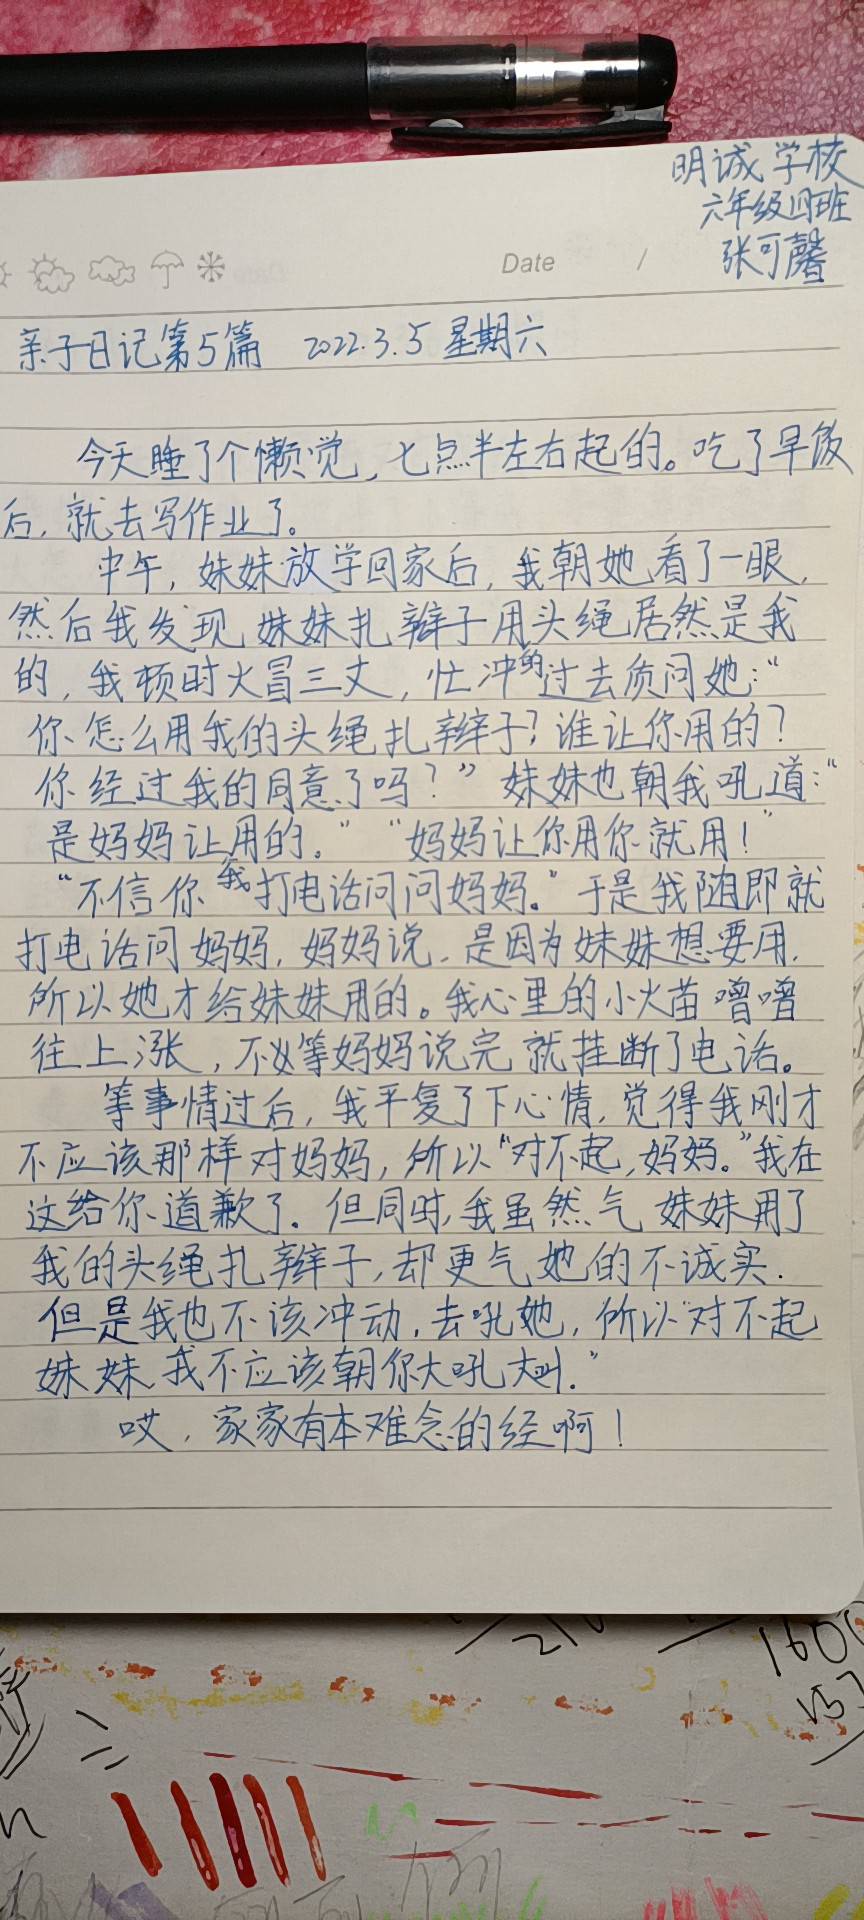 明诚学校
六年级四班
张可馨
Date /
亲子日记第5篇 2022.3.5 星期六
今天睡了个懒觉,七点半左右起的。吃了早饭
后,就去写作业了。
中午,妹妹放学回家后,我朝她看了一眼,
然后我发现妹妹扎辫子用头绳居然是我
的,我顿时火冒三丈,忙冲的过去质问她:“
你怎么用我的头绳扎辫子?谁让你用的?
你经过我的同意了吗?”妹妹也朝我吼道:“
是妈妈让用的。”“妈妈让你用你就用!”
“不信你我打电话问问妈妈。”于是我随即就
打电话问妈妈,妈妈说,是因为妹妹想要用,
所以她才给妹妹用的。我心里的小火苗噌噌
往上涨,不必等妈妈说完就挂断了电话。
等事情过后,我平复了下心情,觉得我刚才
不应该那样对妈妈,所以“对不起,妈妈。”我在
这给你道歉了。但同时,我虽然气妹妹用了
我的头绳扎辫子,却更气她的不诚实.
但是我也不该冲动,去吼她,所以“对不起
妹妹,我不应该朝你大吼大叫.”
哎,家家有本难念的经啊!
210
1600